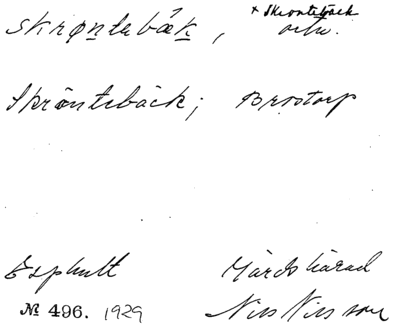 + Skrontebäck
skrøntebǽk, ortn.
Skröntebäck; Brostorp
Esphult Gärds härad
№ 496. 1929 Nils Nilsson